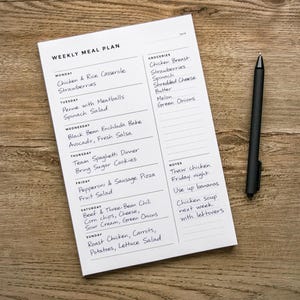 WEEKLY MEAL PLAN
MONDAY
Chicken & Rice Casserole
Strawberries
TUESDAY
Penne with Meatballs
Spinach Salad
WEDNESDAY
Black Bean Enchilada Bake
Avocado, Fresh Salsa
THURSDAY
Team Spaghetti Dinner
Bring Sugar Cookies
FRIDAY
Pepperoni & Sausage Pizza
Fruit Salad
SATURDAY
Beef & Three-Bean Chili
Corn chips, Cheese,
Sour Cream, Green Onions
SUNDAY
Roast Chicken, Carrots,
Potatoes, Lettuce Salad
GROCERIES
Chicken Breast
Strawberries
Spinach
Shredded Cheese
Butter
Melon
Green Onions
NOTES
Their chicken
Friday night
Use up bananas
Chicken soup
next week
with leftovers